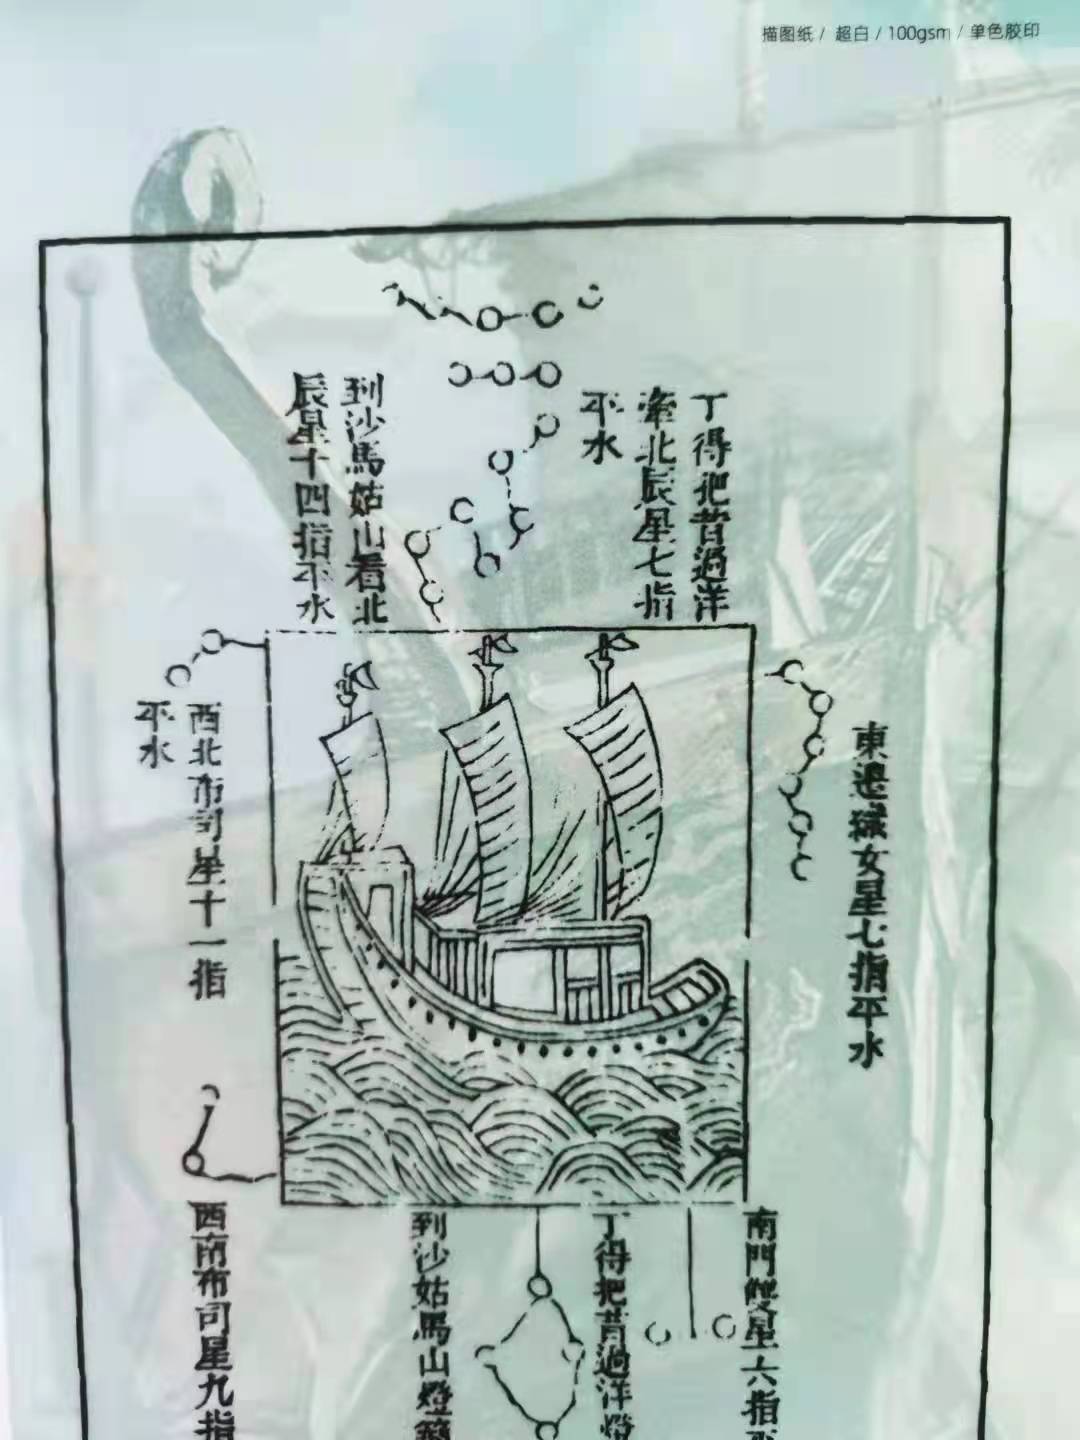 描图纸 / 超白 / 100gsm / 单色胶印
丁得把昔過洋
牽北辰星七指
平水
到沙馬姑山看北
辰星十四指平水
東邉織女星七指平水
西北布司星十一指
平水
南門雙星六指平
丁得把昔過洋燈
到沙姑馬山燈籠
西南布司星九指